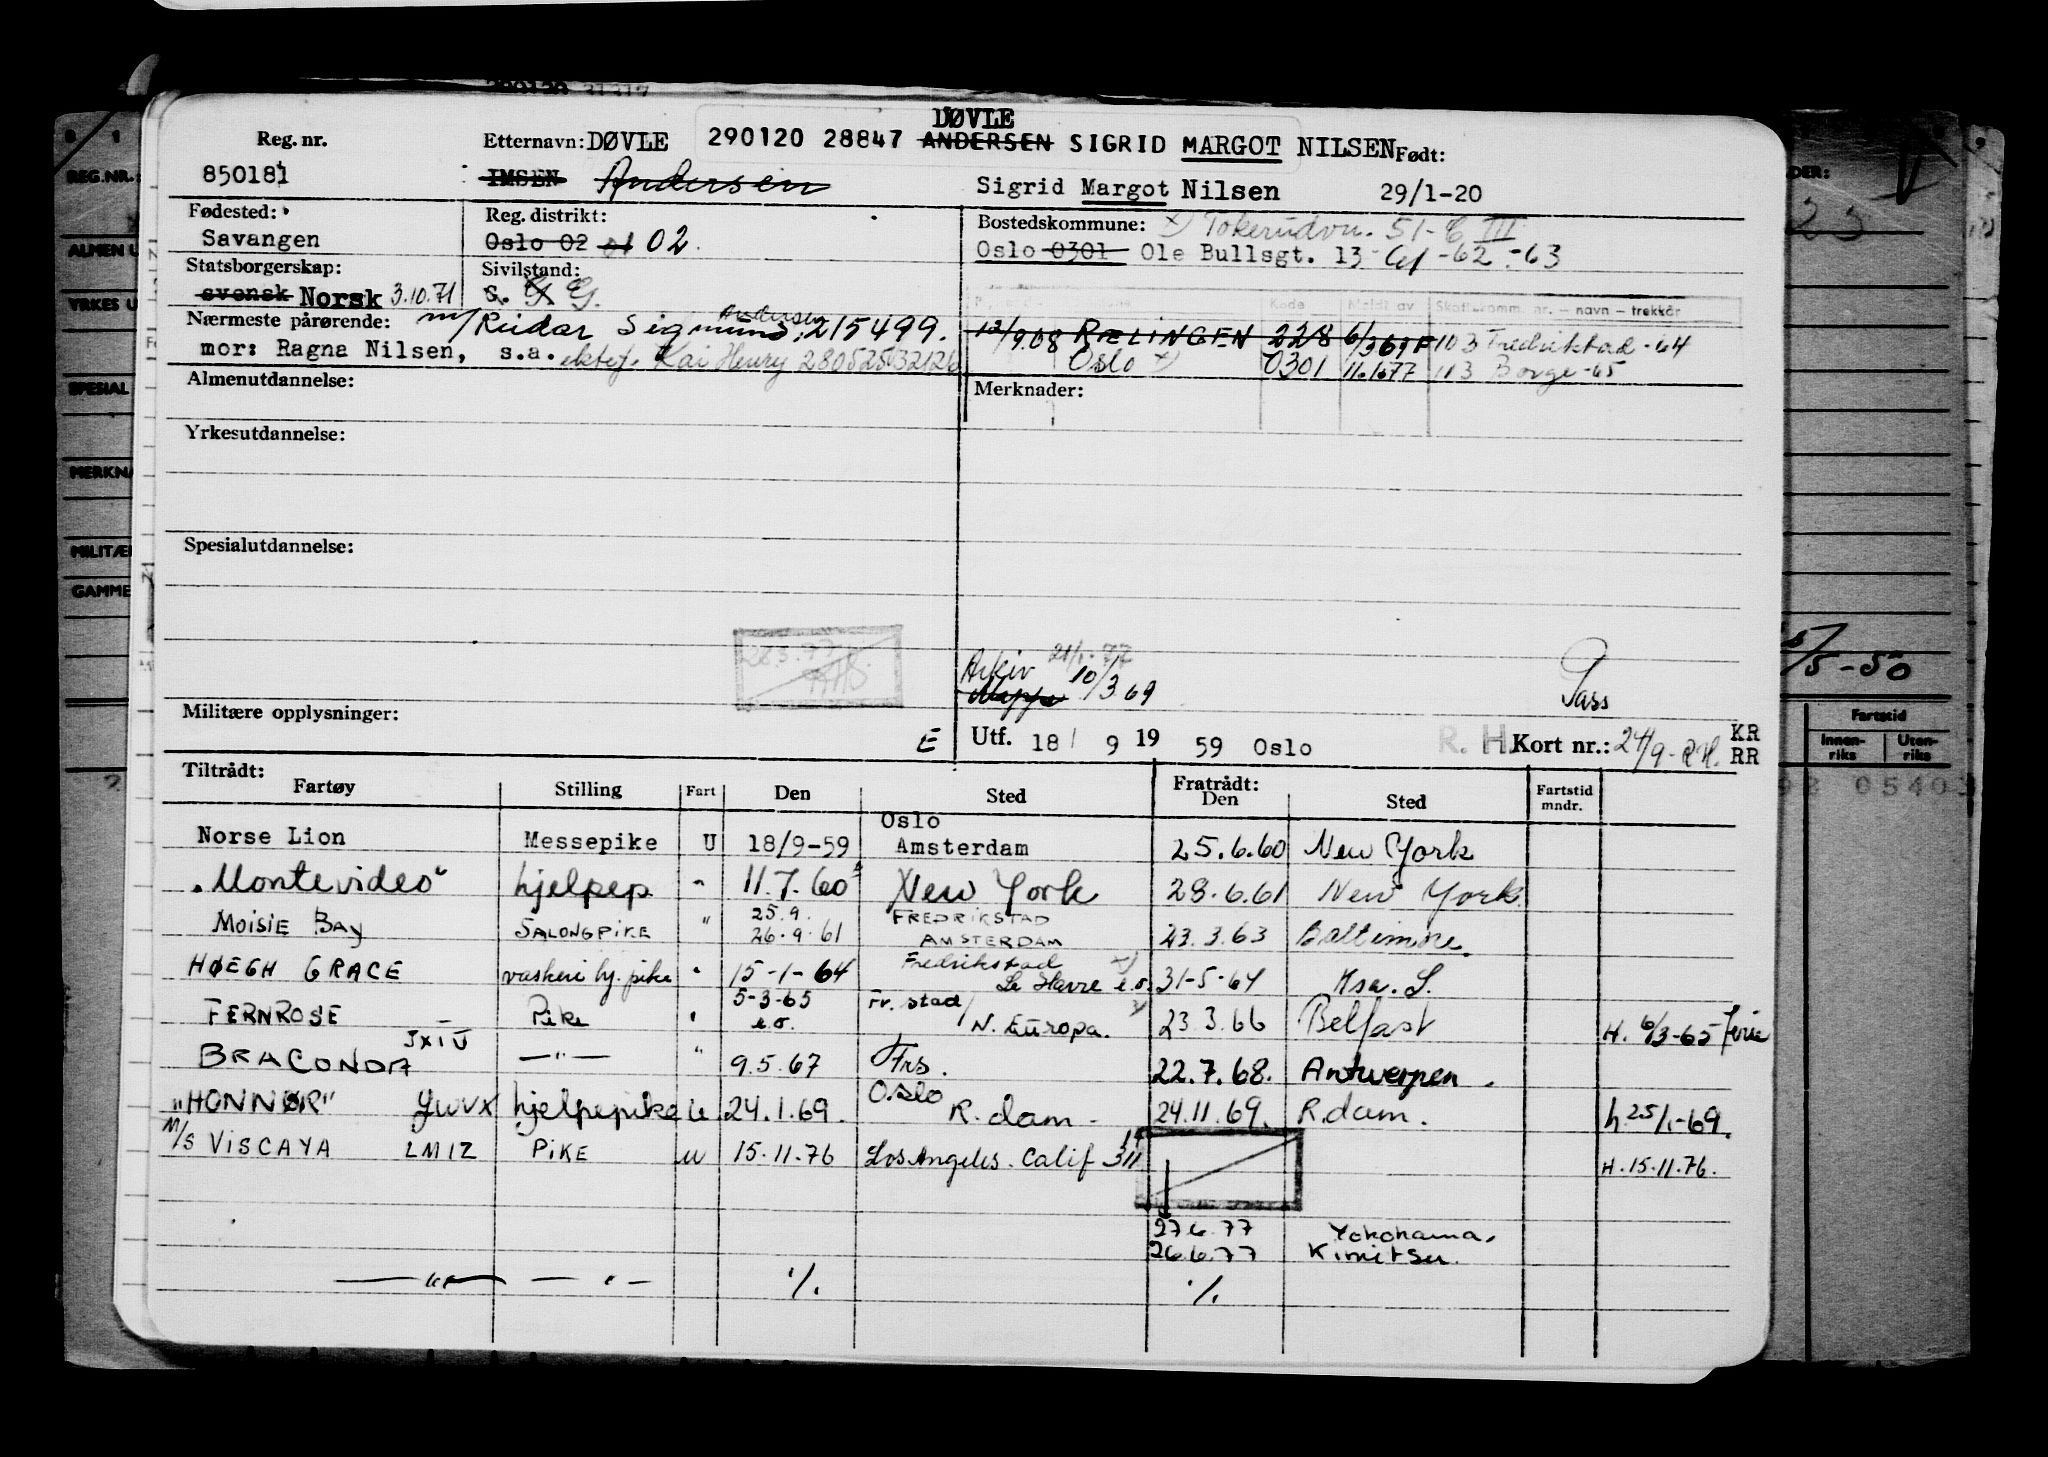 DØVLE
Reg. nr. Etternavn: DØVLE 290120 28847 ANDERSEN SIGRID MARGOT NILSEN Født:
850181 IMSEN Andersen Sigrid Margot Nilsen 29/1-20
Fødested: Reg. distrikt: Bostedskommune: x) Tokerudvn. 51-C III
Savangen Oslo 02 02. Oslo 0301 Ole Bullsgt. 13 -61 -62 -63
Statsborgerskap: Sivilstand:
svensk Norsk 3.10.71 s. G. G.
Nærmeste pårørende: m/ Reidar Sigmund Andersen, 215499. 12/9.68 RÆLINGEN 228 6/3 69 F 103 Fredrikstad -64
mor: Ragna Nilsen, s.a. ektef. Kai Henry 280525 32126 Oslo x) 0301 11.1.77 113 Borge -65
Almenutdannelse: Merknader:
Yrkesutdannelse:
Spesialutdannelse:
28.3.77
Arkiv 21/1-77
Mappe 10/3 69 Pass
Militære opplysninger: E Utf. 18/ 9 19 59 Oslo R. H. Kort nr.: 24/9-R.H. KR
RR
Tiltrådt: Fratrådt:
Fartøy Stilling Fart Den Sted Den Sted Fartstid mndr.
Norse Lion Messepike U 18/9-59 Oslo Amsterdam 25.6.60 New York
"Montevideo" hjelpep. " 11.7.60 New York 28.6.61 New York
MOISIE BAY SALONGPIKE " 25.9. 26.9.61 FREDRIKSTAD AMSTERDAM 23.3.63 Baltimore.
HØEGH GRACE vaskeri hj. pike " 15-1-64 Fredrikstad x) Le Havre e.o. 31-5-64 Hsa. L.
FERNROSE Pike " 5-3-65 e.o. Fr.stad / N. Europa. 23.3.66 Belfast H. 6/3-65 ferie
BRACONDA JXIV —"— " 9.5.67 Frs. 22.7.68. Antwerpen.
"HONNØR" hjelpepike U 24.1.69. Oslo R.dam. 24.11.69. R.dam. h. 25/1-69.
M/S VISCAYA LMIZ PIKE U 15.11.76 Los Angeles. Calif H.15.11.76.
27.6.77 Yokohama.
26.6.77 Kimitsu.
—"— —"— ./. ./.
REG.NR.:
ALMEN U
YRKES U
SPESIAL
MERKNA
MILITÆR
GAMME
5/5-50
Fartstid
Innenriks Utenriks